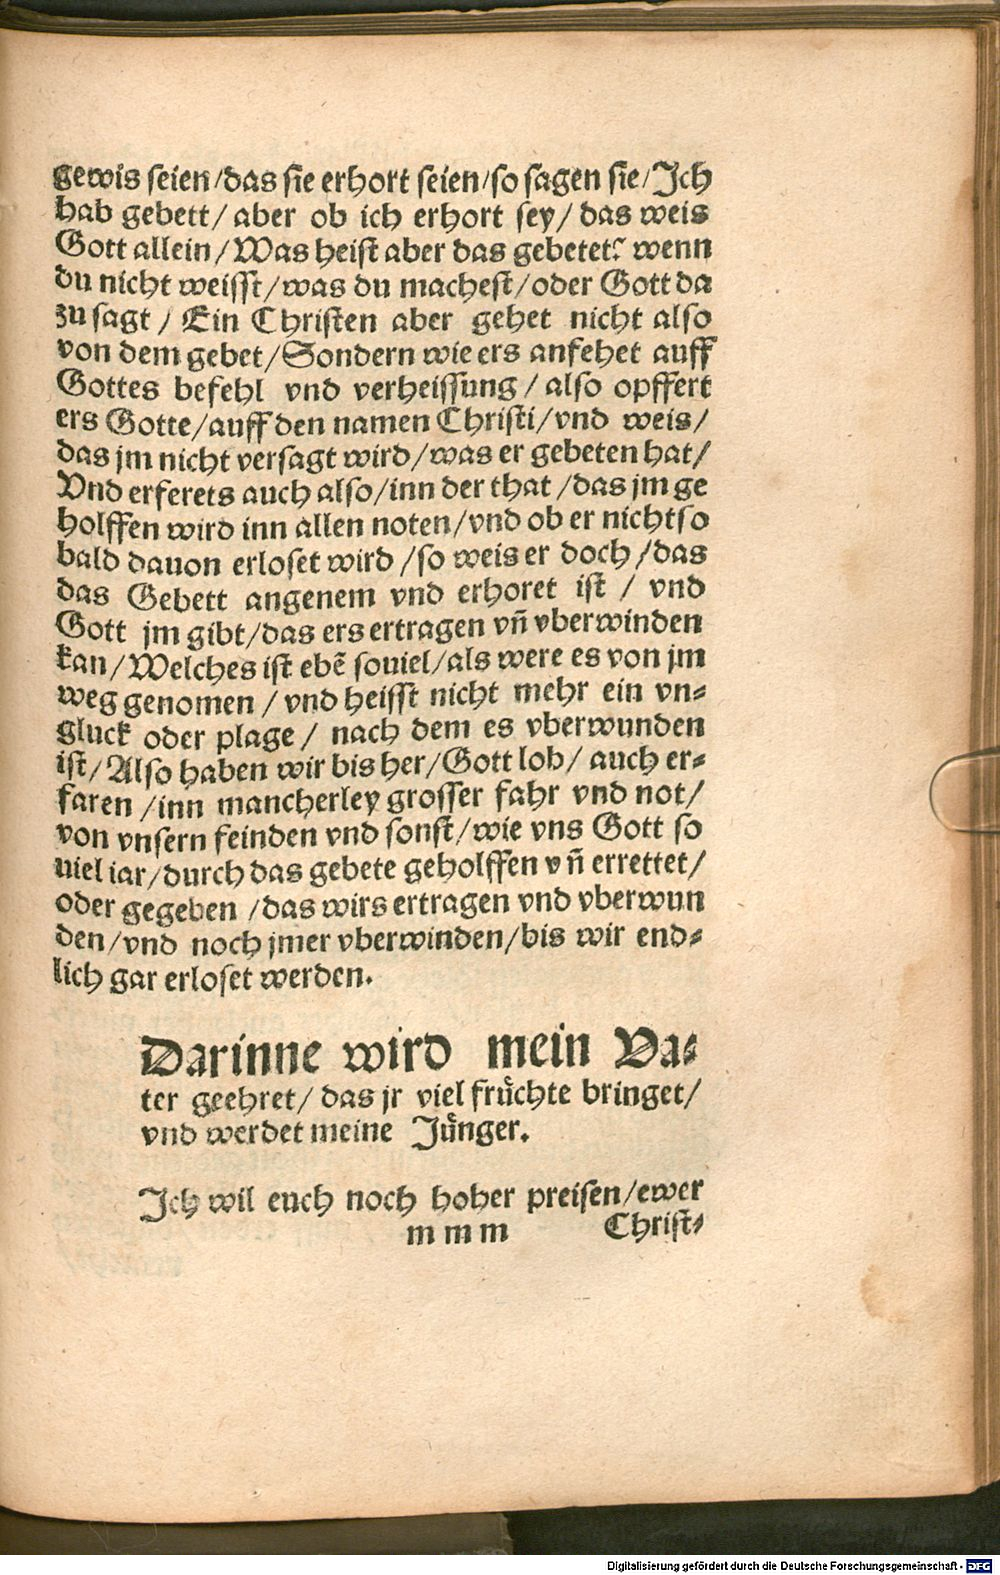 gewis seien/das sie erhort seien/so sagen sie/Jch
hab gebett/ aber ob ich erhort sey/ das weis
Gott allein/Was heist aber das gebetet? wenn
du nicht weisst/was du machest/oder Gott da
zu sagt / Ein Christen aber gehet nicht also
von dem gebet/Sondern wie ers anfehet auff
Gottes befehl vnd verheissung / also opffert
ers Gotte/auff den namen Christi/vnd weis/
das jm nicht versagt wird/was er gebeten hat/
Vnd erferets auch also/inn der that /das jm ge
holffen wird inn allen noten/vnd ob er nicht so
bald dauon erloset wird /so weis er doch /das
das Gebett angenem vnd erhoret ist / vnd
Gott jm gibt/das ers ertragen vñ vberwinden
kan/Welches ist ebẽ souiel/als were es von jm
weg genomen / vnd heisst nicht mehr ein vn-
gluck oder plage / nach dem es vberwunden
ist/Also haben wir bis her/Gott lob/ auch er-
faren /inn mancherley grosser fahr vnd not/
von vnsern feinden vnd sonst/wie vns Gott so
uiel iar/durch das gebete geholffen vñ errettet/
oder gegeben /das wirs ertragen vnd vberwun
den/vnd noch jmer vberwinden/bis wir end-
lich gar erloset werden.
Darinne wird mein Va-
ter geehret/ das jr viel frůchte bringet/
vnd werdet meine Jůnger.
Jch wil euch noch hoher preisen/ewer
m m m Christ-
Digitalisierung gefördert durch die Deutsche Forschungsgemeinschaft - DFG